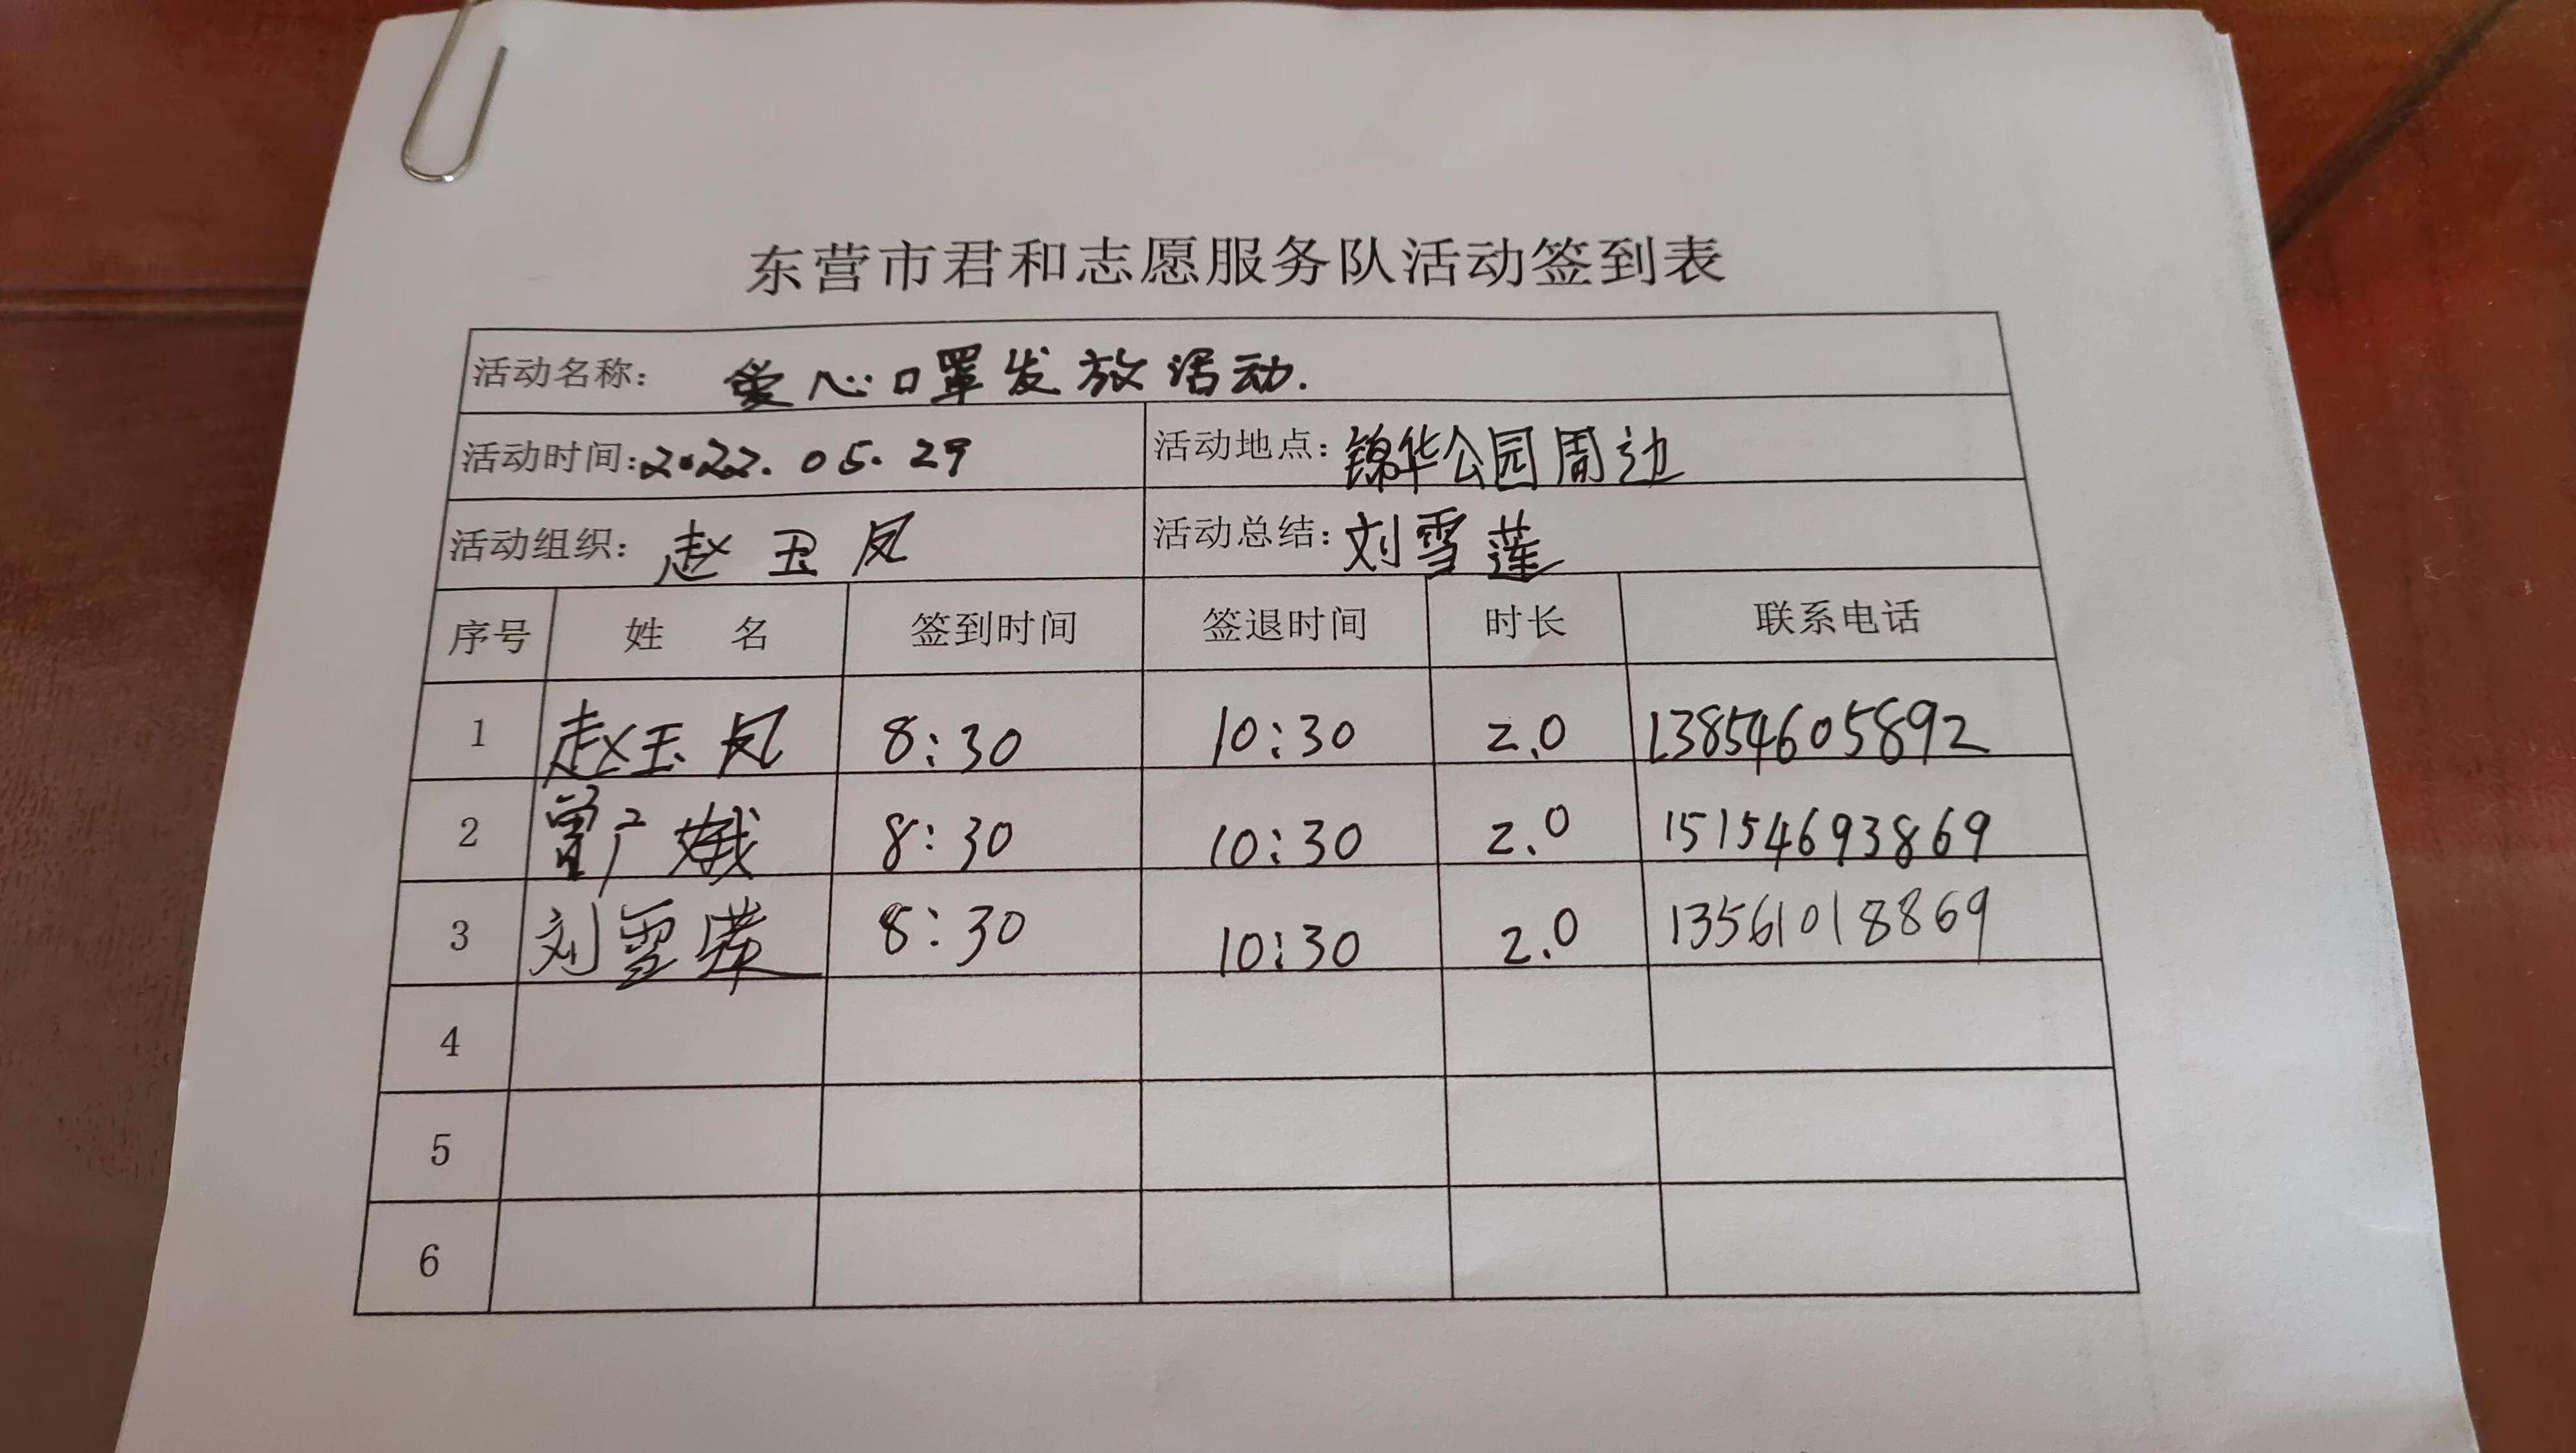 东营市君和志愿服务队活动签到表
活动名称： 爱心口罩发放活动.
活动时间：2022.05.29 活动地点：锦华公园周边
活动组织：赵玉凤 活动总结：刘雪莲
序号 姓 名 签到时间 签退时间 时长 联系电话
1 赵玉凤 8:30 10:30 2.0 13854605892
2 曾广娥 8:30 10:30 2.0 15154693869
3 刘雪莲 8:30 10:30 2.0 13561018869
4
5
6